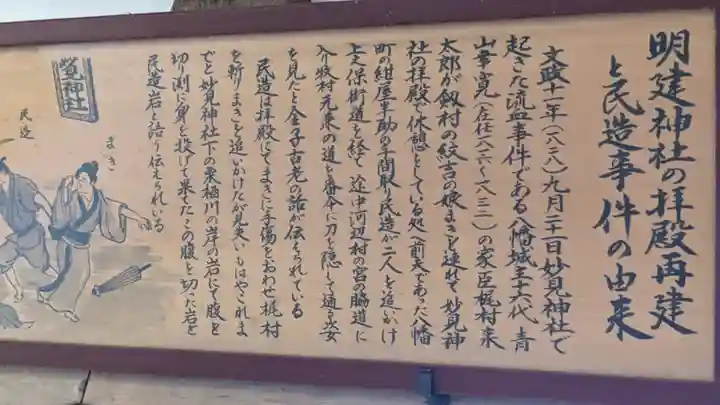 明建神社の拝殿再建
と民造事件の由来
文政十一年(一八二八)九月二十一日妙見神社で
起きた流血事件である八幡城主十六代 青
山幸寛(在任一八二六〜一八三二)の家臣梶村来
太郎が劔村の紋吉の娘まきを連れて妙見神
社の拝殿で休憩としている処へ前夫であった八幡
町の紺屋半助の手間取り民造が二人を追いかけ
上之保街道を経て 途中河辺村の宮の脇道に
入り牧村元来の道を番傘に刀を隠して通る姿
を見たと金子古老の話が伝えられている
民造は拝殿にてまきに手傷をおわせ梶村
を斬りまきを追いかけたが見失いもはやこれま
でと妙見神社下の栗栖川の岸の岩にて腹を
切り渕に身を投げて果てたこの腹を切った岩を
民造岩と語り伝えられいる
鷲神社
まき
民造